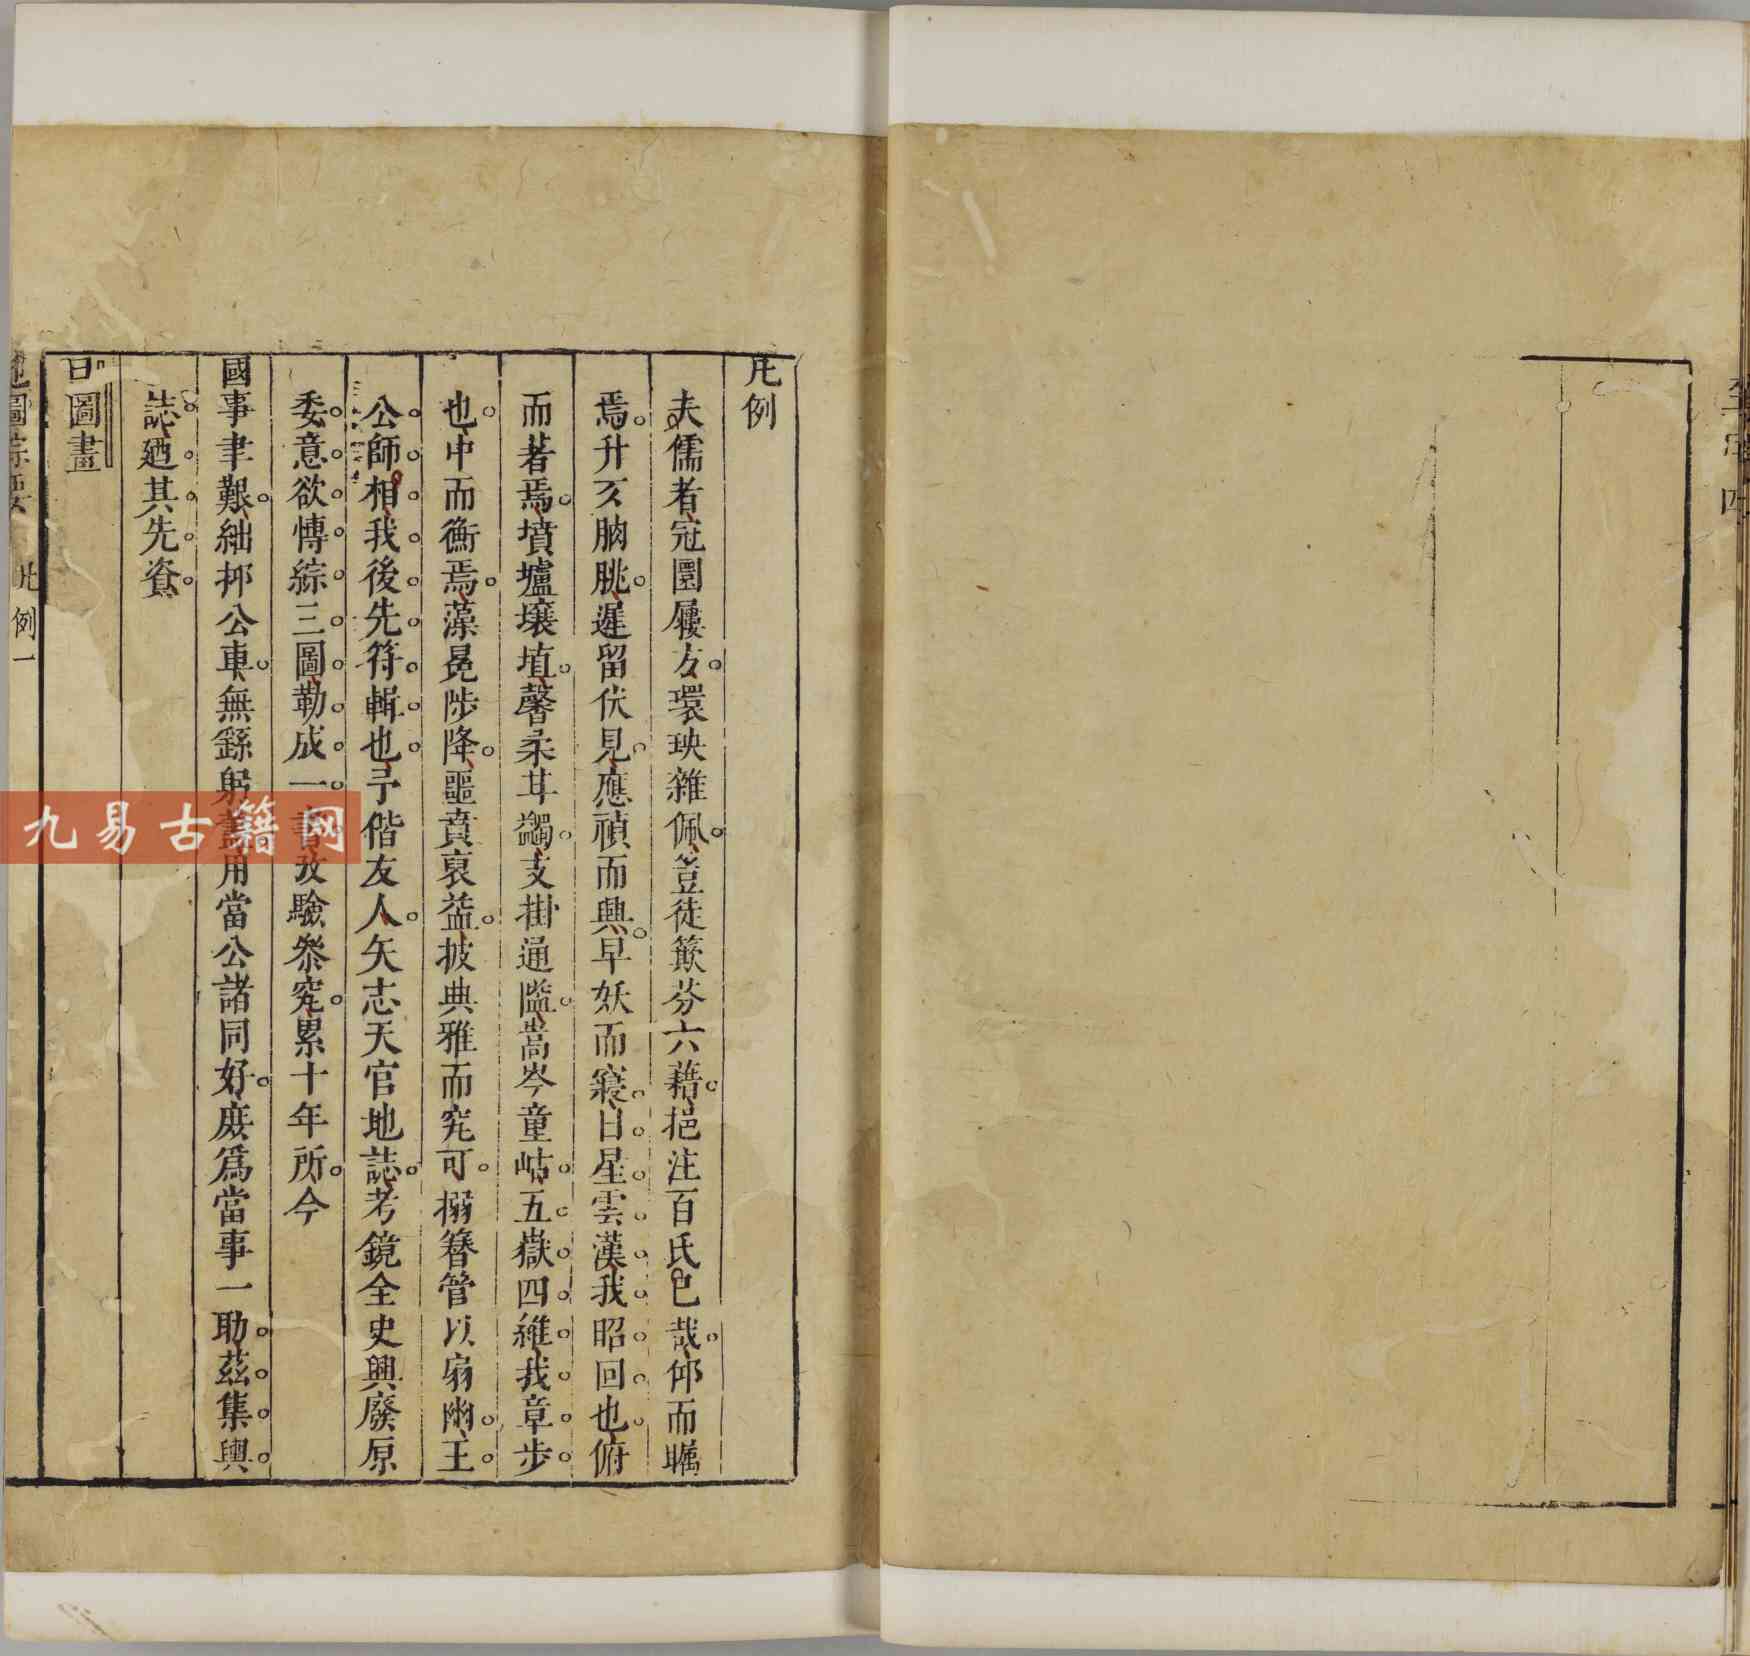 凡例
夫儒者冠圜屨方環玦雜佩豈徒簸芬六藉挹注百氏已哉仰而矚
焉升亥朒朓遲留伏見應禎而興早妖而寢日星雲漢我昭回也俯
而著焉墳壚壤埴馨柔甘蠲支掛通隘嵩岑童岵五嶽四維我章步
也中而衡焉藻冕陟降噩賁裒益披典雅而究可搦簪管以扇幽王
公師相我後先符輯也予偕友人矢志天官地誌考鏡全史興廢原
委意欲慱綜三圖勒成一書攷驗叅究累十年所今
國事聿艱絀抑公車無繇躬用當公諸同好庶爲當事一助茲集輿
誌廼其先資
圖畫
凡例一